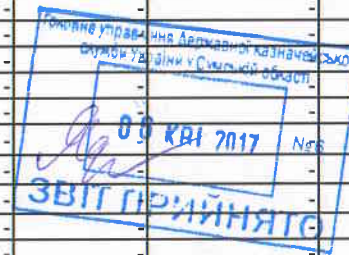 Головне управління Державної казначейської
служби України у Сумській області
КВІ 2017 №6
ЗВІТ ПРИЙНЯТО